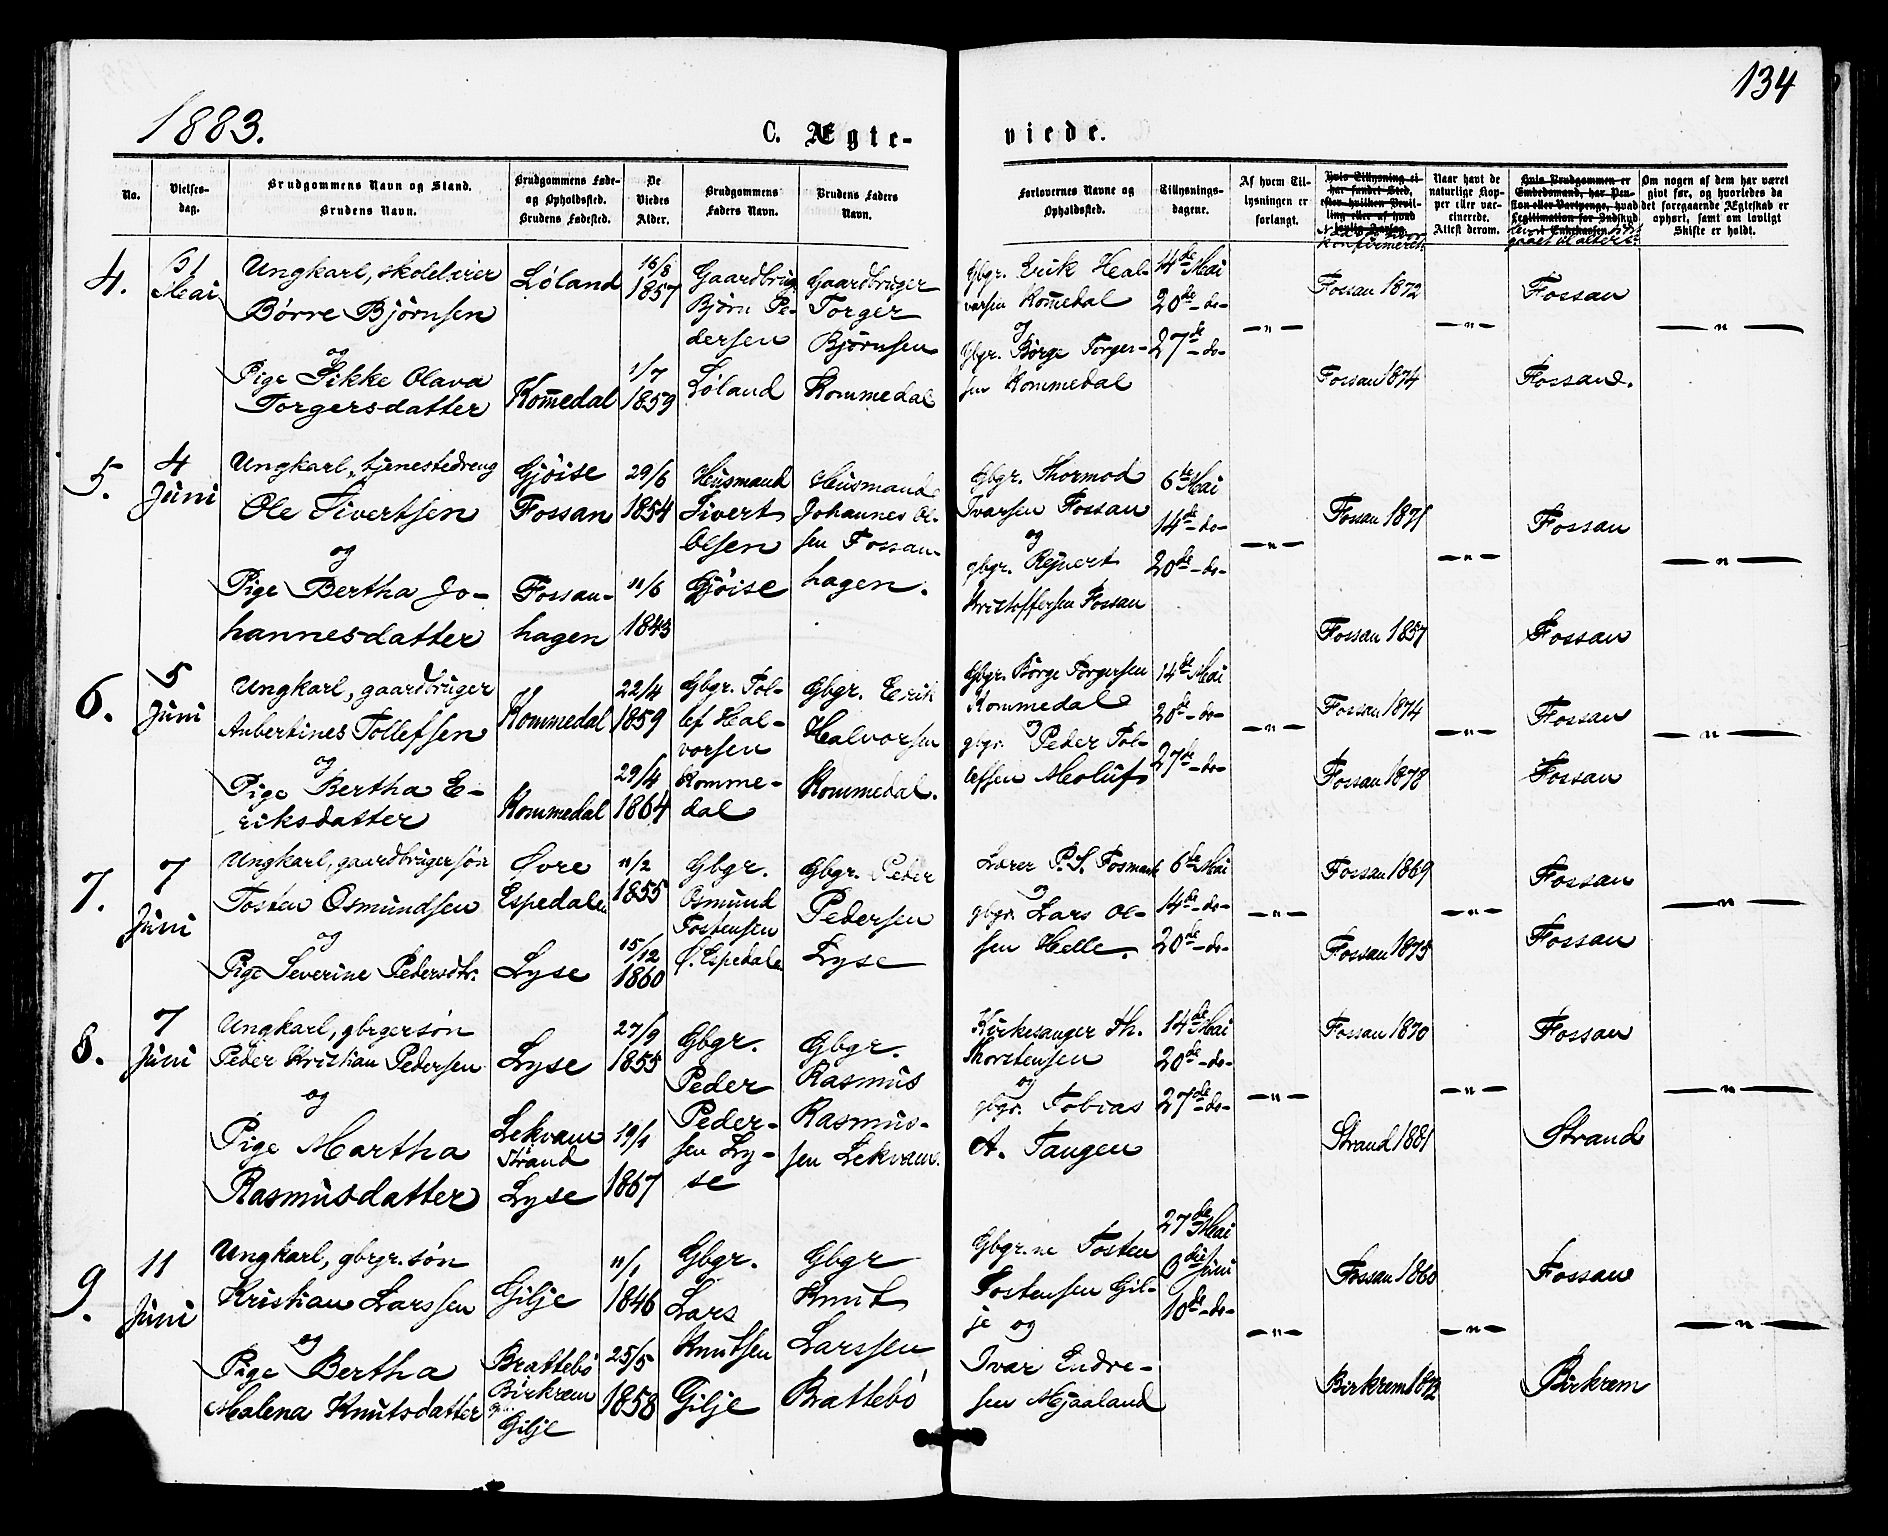 134
1883.
C. Ægte-
viede.
No.
Vielses-
dag.
Brudgommens Navn og Stand.
Brudens Navn.
Brudgommens Føde-
og Opholdssted.
Brudens Fødested.
De
Viedes
Alder.
Brudgommens
Faders Navn.
Brudens Faders
Navn.
Forlovernes Navne og
Opholdssted.
Tillysnings-
dagene.
Af hvem Til-
lysningen er
forlangt.
Hvis Tillysning ei
har fundet Sted,
efter hvilken Bevil-
ling eller af hvad
lovlig Aarsag.
konfirmeret
Naar havt de
naturlige Kop-
per eller var-
cinerede.
Attest derom.
Hvis Brudgommen er
Embedsmand, har Pen-
sion eller Vartpenge, hvad
Legitimation for Indskud
i Enkekassen.
gaaet til alters
Om nogen af dem har været
gift før, og hvorledes da
det foregaaende Ægteskab er
ophørt, samt om lovligt
Skifte er holdt.
4.
31
Mai
Ungkarl, skolelærer
Børre Bjørnsen
og
Pige Sikke Olava
Torgersdatter
Løland
Kom̅edal
16/8
1857
1/7
1859
Gaardbrug
Bjørn Pe-
dersen
Løland
Gaardbruger
Torger
Bjørnsen
Kommedal
Gbgr. Erik Hal-
varsen Kom̅edal
og
Gbgr. Børge Torger-
sen Kommedal
14de Mai
20de - do -
27de - do -
- " -
Fossan 1872
Fossan 1874
- " -
Fossan
Fossan.
- " -
5.
4
Juni
Ungkarl, tjenestedreng
Ole Sivertsen
og
Pige Bertha Jo-
hannesdatter
Gjøise
Fossan
Fossan-
hagen
29/6
1854
11/6
1843
Husmand
Sivert
Olsen
Gjøise
Husmand
Johannes Ol-
sen Fossan-
hagen.
Gbgr. Thormod
Ivarsen Fossan
og
gbgr. Rejnert
Kristoffersen Fossan
6te Mai
14de - do -
20de - do -
- " -
Fossan 1871
Fossan 1857
- " -
Fossan
Fossan
- " -
6.
5
Juni
Ungkarl, gaardbruger
Anbertines Tollefsen
og
Pige Bertha E-
riksdatter
Kommedal
Kommedal
22/4
1859
29/4
1864
Gbgr. Tol-
lef Hal-
vorsen
Komme-
dal
Gbgr. Erik
Halvorsen
Kommedal.
Gbgr. Børge Torgersen
Kommedal
og
gbgr. Peder Tol-
lefsen Moluf
14de Mai
20de - do -
27de - do -
- " -
Fossan 1874
Fossan 1878
- " -
Fossan
Fossan
- " -
7.
7
Juni
Ungkarl, gaardbrugersøn
Tosten Osmundsen
og
Pige Severine Pedersdtr.
Øvre
Espedalen
Lyse
11/2
1855
15/12
1860
Gbgr.
Osmund
Tostensen
Ø. Espedalen
Gbgr. Peder
Pedersen
Lyse
Lærer P. S. Fosmark
og
gbgr. Lars Ol-
sen Helle.
6te Mai
14de - do -
20de - do -
- " -
Fossan 1869
Fossan 1875
- " -
Fossan
Fossan
- " -
8.
7
Juni
Ungkarl, gbrgersøn
Peder Kristian Pedersen
og
Pige Martha
Rasmusdatter
Lyse
Lekvam
Strand
Lyse
27/9
1855
19/1
1867
Gbgr.
Peder
Peder-
sen Ly-
se
Gbgr.
Rasmus
Rasmus-
sen Lekvam.
Kirkesanger Th.
Thorstensen
og
gbgr. Tobias
A. Tangen
14de Mai
20de - do -
27de - do -
- " -
Fossan 1870
Strand 1881
- " -
Fossan
Strand
- " -
9.
11
Juni
Ungkarl, gbrgr. søn
Kristian Larssen
og
Pige Bertha
Malena Knutsdatter
Gilje
Brattebø
Birkrem
Gilje
11/1
1846
25/5
1858
Gbgr.
Lars
Knutsen
Gilje
Gbgr
Knut
Larssen
Brattebø
Gbgr.ne Tosten
Tostensen Gil-
je og
Ivar Endre-
sen Mjaaland
27de Mai
3die Juni
10de - do -
- " -
Fossan 1860
Birkrem 1872
- " -
Fossan
Birkrem
- " -